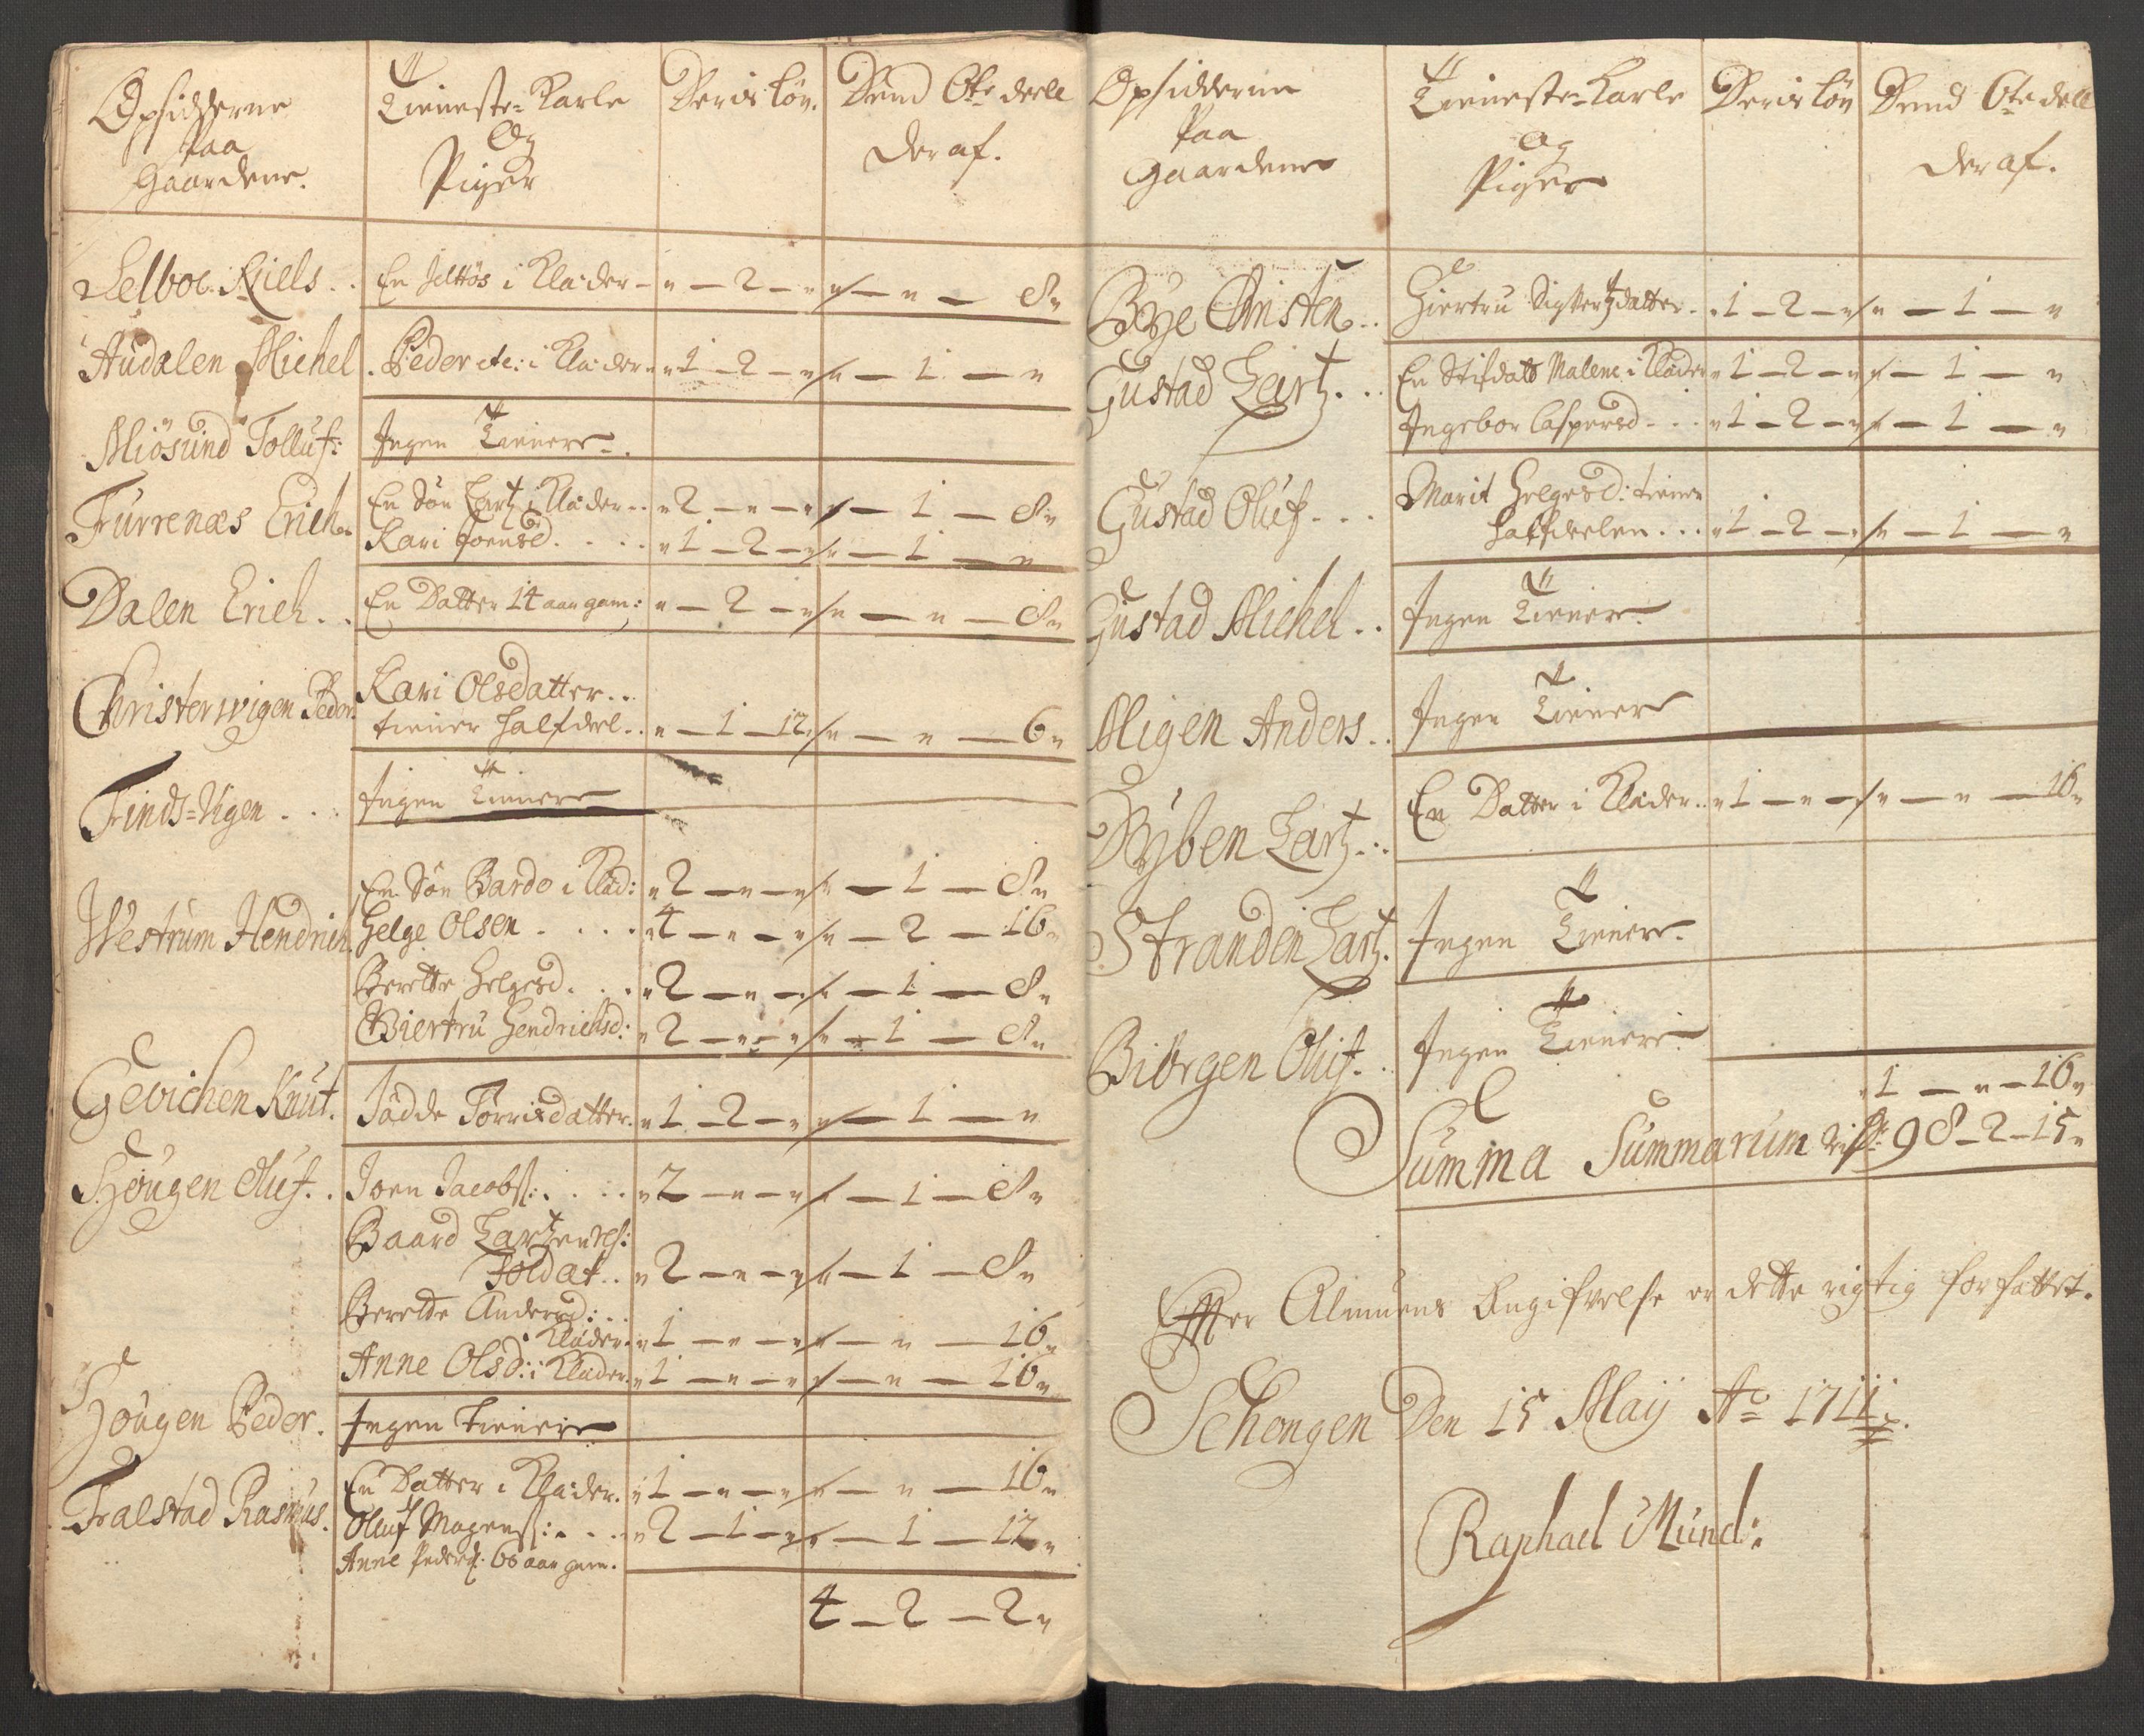 Opsidderne
Paa
Gaardene.
Tieneste-Karle
Og
Piger
Deris Løn.
Dend 6te deell
der af.
Selboe Niells . . En i Klæder - " - 2 - " - " - 8 "
Audalen Michel . Peder etc: i Klæder " 1 - 2 - " - 1 - "
Miösund Tolluf: Ingen Tienere.
Furrenæs Erich. En Søn Lartz i Klæder . . " 2 - " - " - 1 - 8 "
Kari Joensd. . . . " 1 - 2 - " - 1 - "
Dalen Erich . . En Datter 14 aar gam: " - 2 - " - " - 8 "
Christerwigen Peder. Kari Olsdatter . .
tiener halfdeel . . " - 1 - 12 " - " - 6 "
Finds-Vigen . . . Ingen Tienere
Westrum Hendrich. En Søn Bardo i Klæd: " 2 - " - " - 1 - 8 "
Helge Olsen . . . . " 4 - " - " - 2 - 16 "
Berette Helgesd. . . " 2 - " - " - 1 - 8 "
Giertru Hendrichsd: " 2 - " - " - 1 - 8 "
Gevichen Knut. Sædde Torrisdatter. " 1 - 2 - " - 1 - "
Hougen Oluf. . Joen Jacobs: . . . " 2 - " - " - 1 - 8 "
Baard Lartzen
Soldat . . " 2 - " - " - 1 - 8 "
Berette Andersd: . .
i Klæder. " 1 - " - " - " - 16 "
Anne Olsd: i Klæder. " 1 - " - " - " - 16 "
Hougen Peder. Ingen Tienere
Tralstad Rasmus. En Datter i Klæder. " 1 - " - " - " - 16 "
Oluf Mogens: . . . " 2 - 1 - " - 1 - 12 "
Anne Pedersd. 60 aar gam.
4 - 2 - 2 "
Opsidderne
Paa
Gaardene
Tieneste-Karle
Og
Piger
Deris Løn
Dend 6te deell
der af.
Bye Christen . . Giertru Sivertzdatter . . 1 - 2 - " - 1 - "
Gustad Lartz . . . En Stifdatt Malene i Klæder " 1 - 2 - " - 1 - "
Ingebor Caspersd . . . " 1 - 2 - " - 1 - "
Gustad Oluf . . . Marit Helgesd: tiener
halfdeelen . . . " 1 - 2 - " - 1 - "
Gustad Michel . . Ingen Tienere
Migen Anders . . Ingen Tienere
Dyben Lartz . . . En Datter i Klæder . . " 1 - " - " - " - 16 "
Stranden Lartz. Ingen Tienere.
Biörgen Oluf. . Ingen Tienere
" 1 - " - 16 "
Summa Summarum 98 - 2 - 15 "
Efter Almuens Angifvelse er dette rigtig forfattet.
Schongen Den 15 Maij Ao 1711.
Raphael Mund: